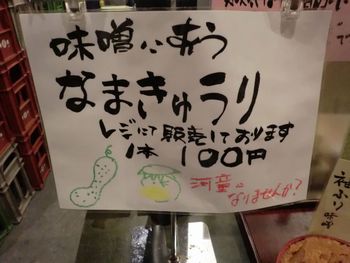 味噌にあう
なまきゅうり
レジにて販売しております
1本 100円
河童に
なりませんか?
袖ふり
味噌